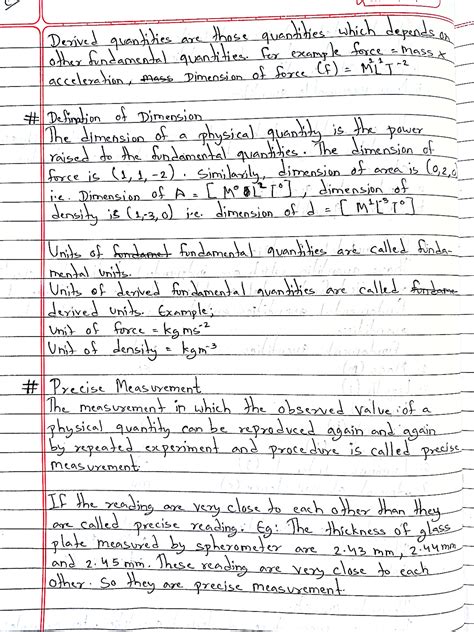 Derived quantities are those quantities which depends on
other fundamental quantities. for example force = mass x
acceleration, mass Dimension of force (f) = M¹L¹T⁻²
# Defination of Dimension
The dimension of a physical quantity is the power
raised to the fundamental quantities. The dimension of
force is (1, 1, -2). Similarily, dimension of area is (0,2,0)
i.e. Dimension of A = [M⁰ L² T⁰] ; dimension of
density is (1,-3, 0) i.e. dimension of d = [M¹L⁻³T⁰]
Units of fundamet fundamental quantities are called funda-
mental units.
Units of derived fundamental quantities are called fundame
derived units. Example;
Unit of force = kgms⁻²
Unit of density = kgm⁻³
# Precise Measurement
The measurement in which the observed value of a
physical quantity can be reproduced again and again
by repeated experiment and procedure is called precise
measurement.
If the reading are very close to each other than they
are called precise reading. Eg: The thickness of glass
plate measured by spherometer are 2.43 mm, 2.44mm
and 2.45mm. These reading are very close to each
other. So they are precise measurement.